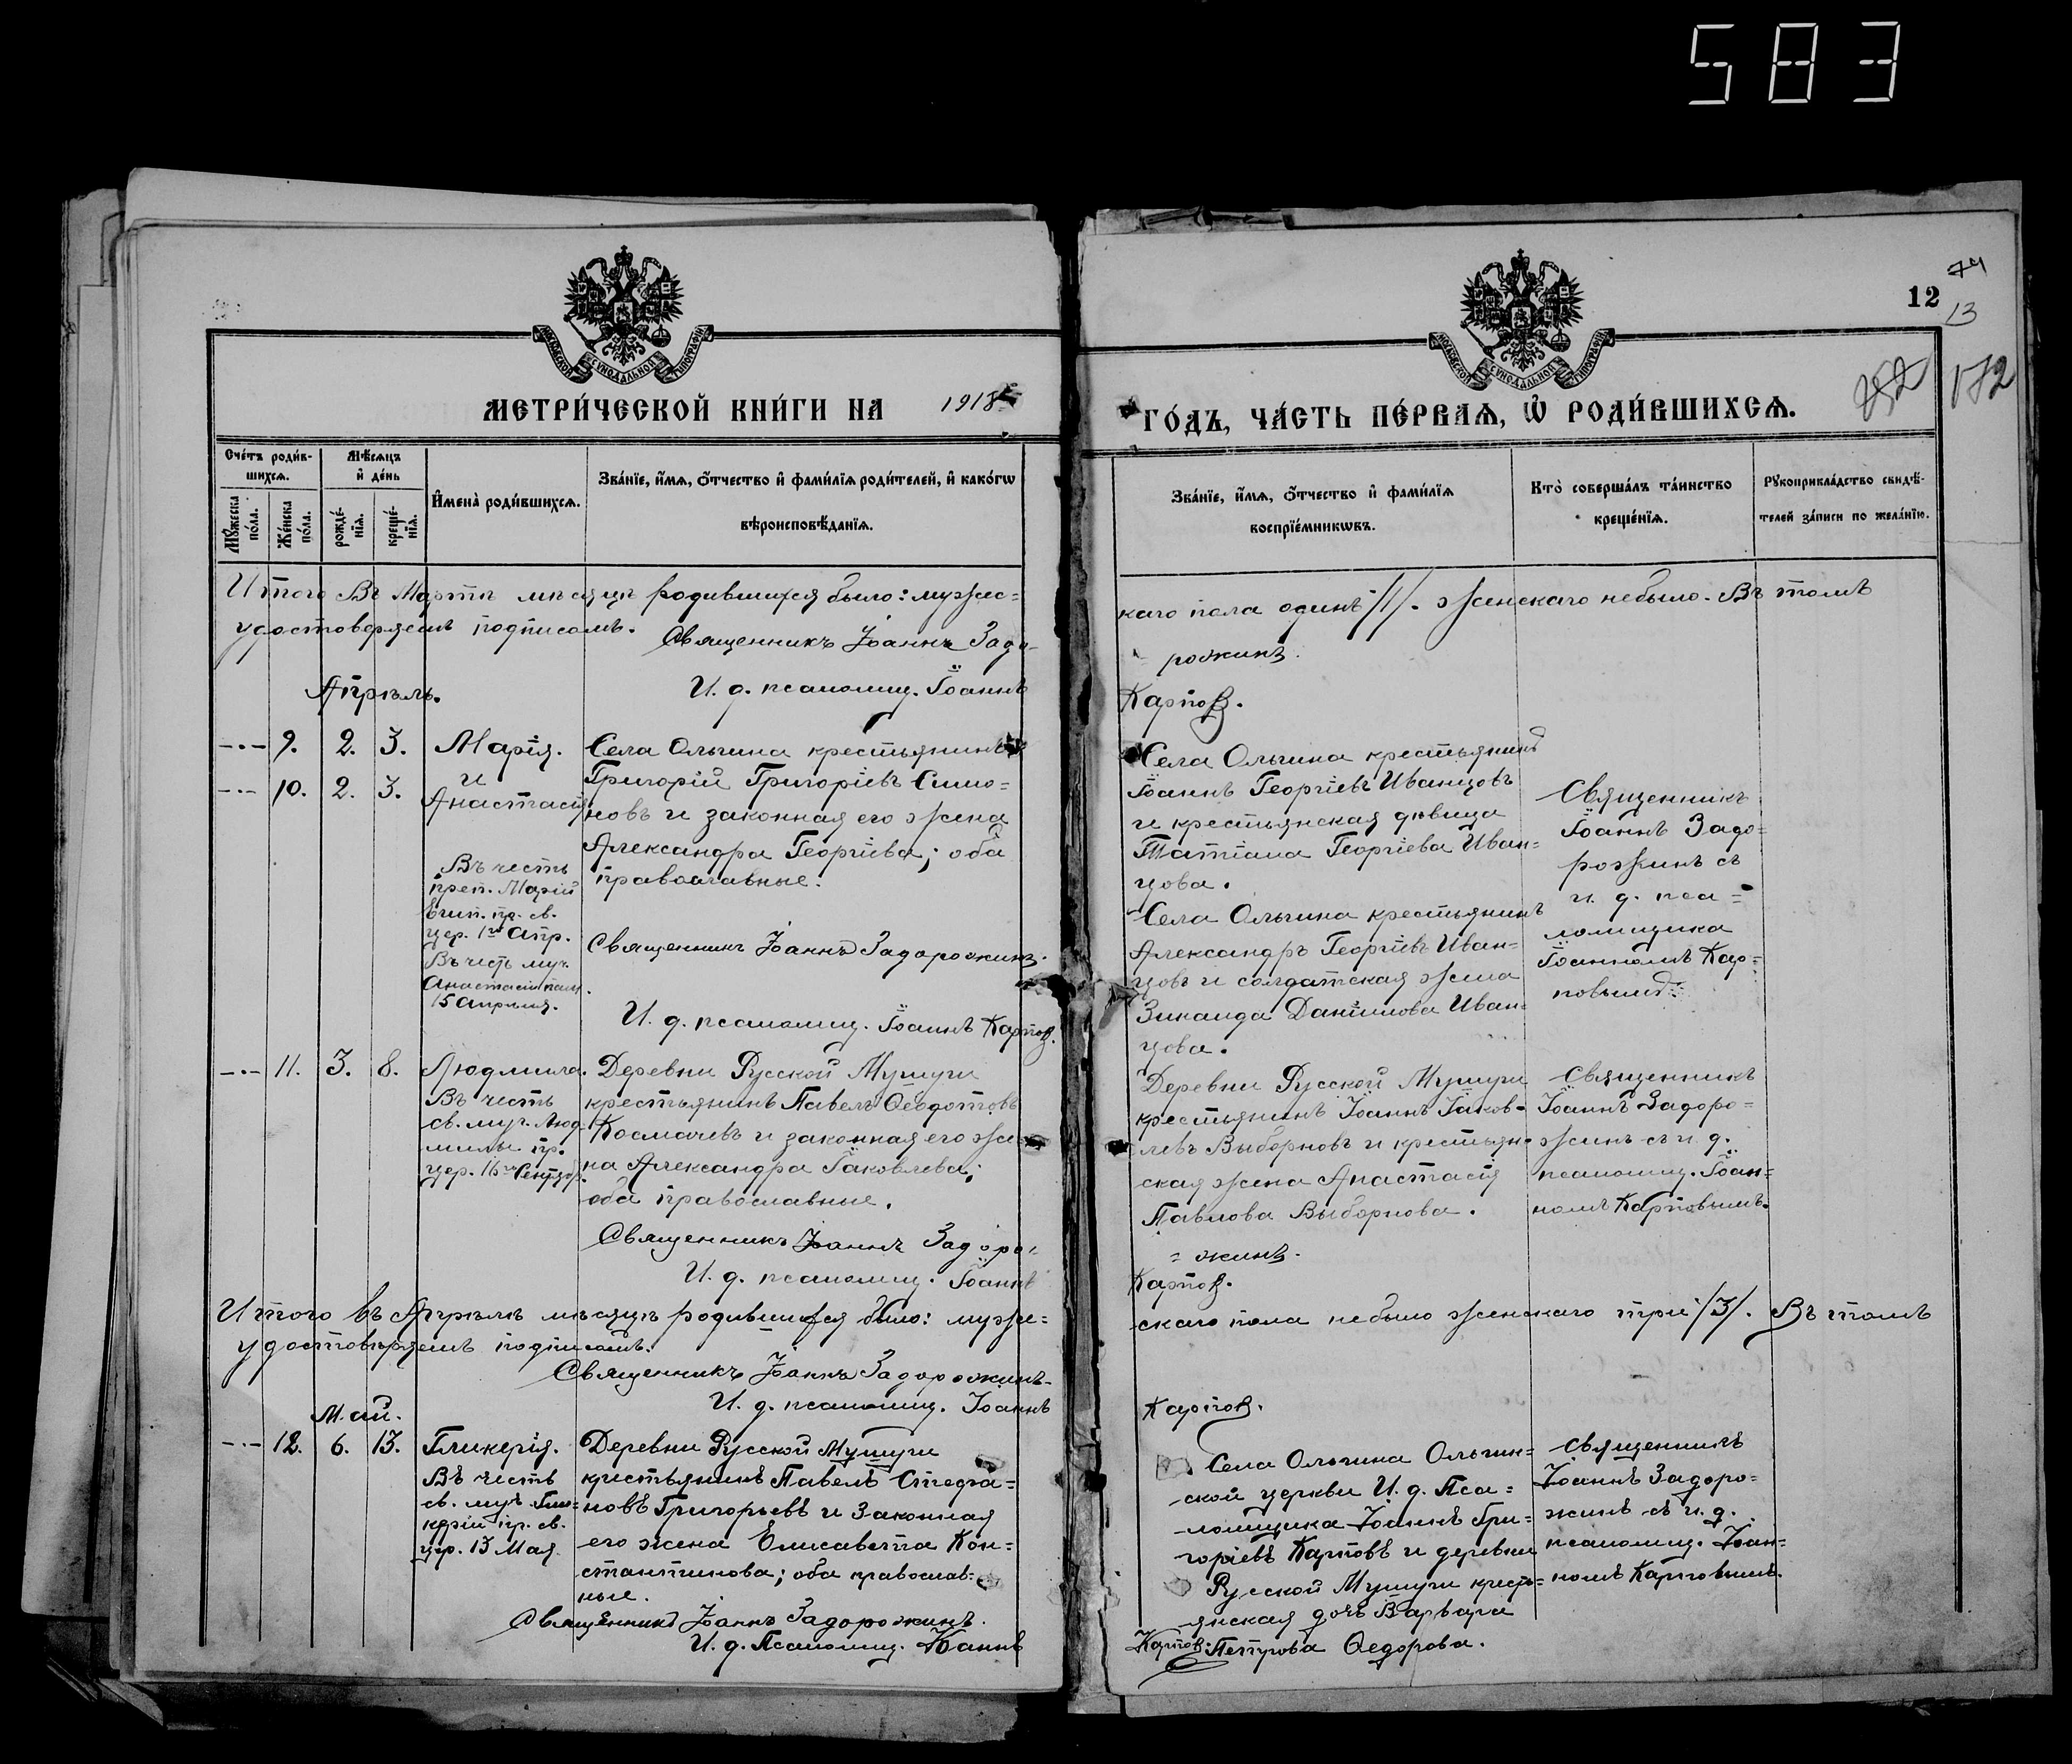 583
74
12
13
МОСКОВСКОЙ СУНОДАЛЬНОЙ ТИПОГРАФІИ
МОСКОВСКОЙ СУНОДАЛЬНОЙ ТИПОГРАФІИ
252 172
МЕТРИ́ЧЕСКОЙ КНИ́ГИ НА 1918
ГО́ДЪ, ЧА́СТЬ ПЕ́РВАѦ, Ѡ҆ РОДИ́ВШИХСѦ.
Сче́тъ роди́в-
шихсѧ.
Мѣ́сѧцъ
и҆ де́нь
Мꙋ́жеска по́ла.
Же́нска по́ла.
рожде́-
нїѧ.
креще́-
нїѧ.
И҆мена̀ роди́вшихсѧ.
Зва́нїе, и҆́мѧ, ѻ҆́тчество и҆ фами́лїѧ роди́телей, и҆ како́гѡ
вѣроисповѣ́данїѧ.
Зва́нїе, и҆́мѧ, ѻ҆́тчество и҆ фами́лїѧ
воспрїе́мникѡвъ.
Кто̀ соверша́лъ та́инство
креще́нїѧ.
Рꙋкоприкла́дство свидѣ́-
телей за́писи по жела́нїю.
Итого Въ Мартѣ мѣсяцѣ родившихся было: мужес=
каго пола одинъ /1/. женскаго небыло. Въ томъ
удостовѣряемъ подписомъ.
Священникъ Іоаннъ Задо-
рожинъ.
И. д. псаломщ. Іоаннъ
Карпов.
Апрѣль.
9. 2. 3. Марія.
и
10. 2. 3. Анастасія
Въ честь
преп. Маріи
Егип. пр. св.
цер. 1го Апр.
Въ честь муч.
Анастасіи пам.
15 Апрѣля.
Села Ольгина крестьянинъ
Григорій Григоріевъ Симо=
новъ и законная его жена
Александра Георгіева; оба
православные.
Священникъ Іоаннъ Задорожинъ.
И. д. псаломщ. Іоаннъ Карпов.
Села Ольгина крестьянинъ
Іоаннъ Георгіевъ Иванцовъ
и крестьянская дѣвица
Татіана Георгіева Иван=
цова.
Села Ольгина крестьянинъ
Александръ Георгіевъ Иван=
цовъ и солдатская жена
Зинаида Даніилова Иван=
цова.
Священникъ
Іоаннъ Задо=
рожинъ съ
и. д. пса=
ломщика
Іоанномъ Кар=
повымъ.
11. 3. 8. Людмила.
Въ честь
св. муч. Люд-
милы пр.
цер. 16го Сентяб.
Деревни Русской Мушуги
крестьянинъ Павелъ Ѳеодотовъ
Космачевъ и законная его же=
на Александра Іаковлева;
оба православные.
Священникъ Іоаннъ Задоро=
= жинъ.
И. д. псаломщ. Іоаннъ
Карпов.
Деревни Русской Мушуги
крестьянинъ Іоаннъ Іаков=
левъ Выборновъ и крестьян=
ская жена Анастасія
Павлова Выборнова.
Священникъ
Іоаннъ Задоро=
жинъ съ и. д.
псаломщ. Іоан=
номъ Карповымъ.
Итого въ Апрѣлѣ мѣсяцѣ родившихся было: муже=
скаго пола небыло женскаго три /3/. Въ томъ
удостовѣряемъ подписомъ.
Священникъ Іоаннъ Задорожинъ.
И. д. псаломщ. Іоаннъ
Карпов.
Май.
12. 6. 13. Гликерія.
Въ честь
св. муч. Гли=
керіи пр. св.
цер. 13 Мая.
Деревни Русской Мушуги
крестьянинъ Павелъ Стефа=
новъ Григорьевъ и Законная
его жена Елисавета Кон=
стантинова; оба православ=
ные.
Священникъ Іоаннъ Задорожинъ.
И. д. Псаломщ. Іоаннъ
Карпов.
Села Ольгина Ольгин=
ской церкви И. д. Пса=
ломщика Іоаннъ Гри=
горіевъ Карповъ и деревни
Русской Мушуги кресть=
янская дочь Варвара
Петрова Ѳедорова.
Священникъ
Іоаннъ Задоро=
жинъ съ и. д.
псаломщ. Іоан=
номъ Карповымъ.